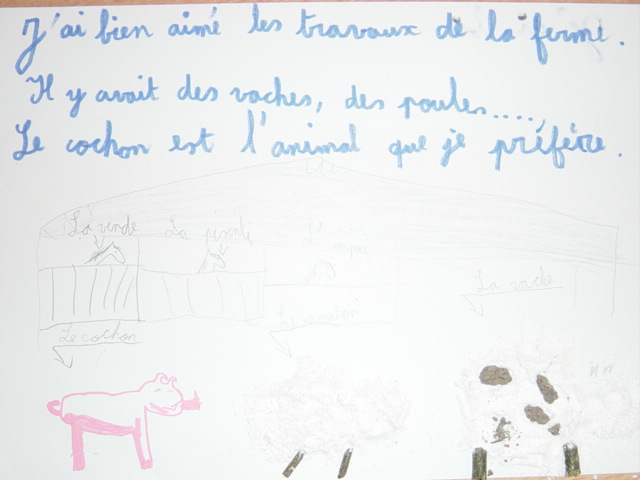 J'ai bien aimé les travaux de la ferme.
Il y avait des vaches, des poules.....,
Le cochon est l'animal que je préfère.
La
La
L'
La vache
Le cochon
Le